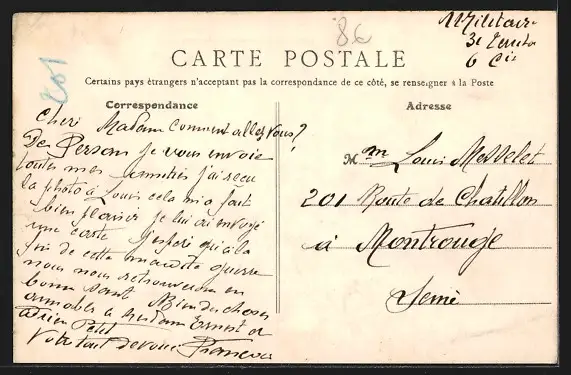 Militaire
3e Territo
6 Cie
86
201
CARTE POSTALE
Certains pays étrangers n'acceptant pas la correspondance de ce côté, se renseigner à la Poste
Correspondance
Cheri Madam Comment allez Vous?
De Persan je vous envoie
toutes mes amitiés j'ai reçu
la photo à Louis cela m'a fait
bien plaisir je lui ai envoyé
une carte j'espère qu'à la
fin de cette maudite guerre
nous nous retrouverons en
bonne santé Bien des choses
aimables à Madam Ernest et
Adrien Petit
Votre tout dévoué François
Adresse
Mme Louis Messelet
201 Route de Chatillon
à Montrouge
Seine